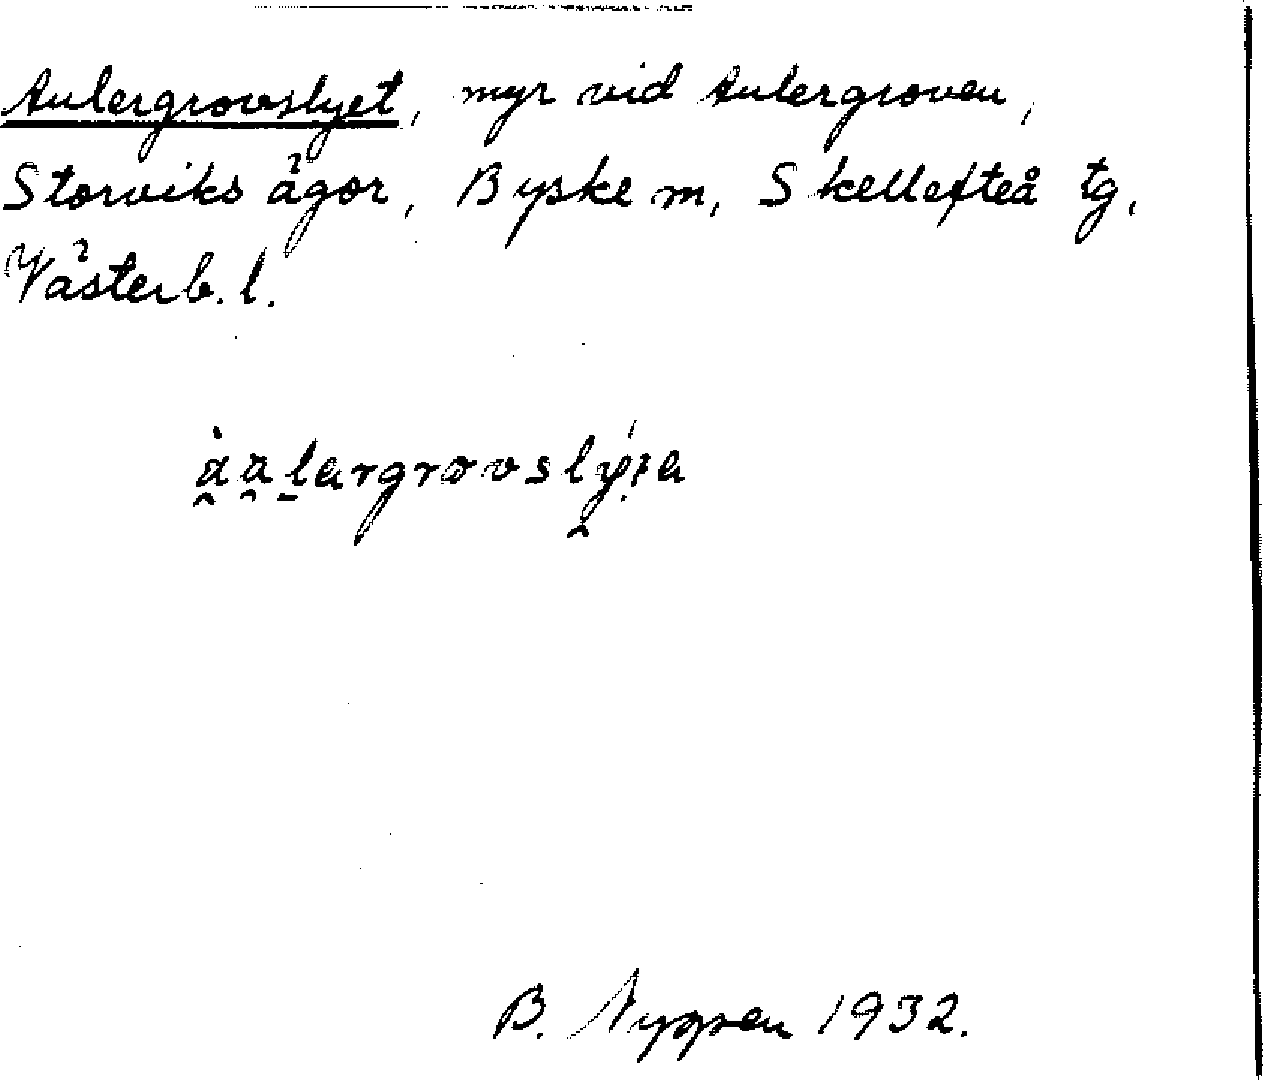 Aulergrovslyet, myr vid Aulergroven,
Storviks ägor, Byske sn, Skellefteå tg,
Västerb. l.
B. Nygren 1932.